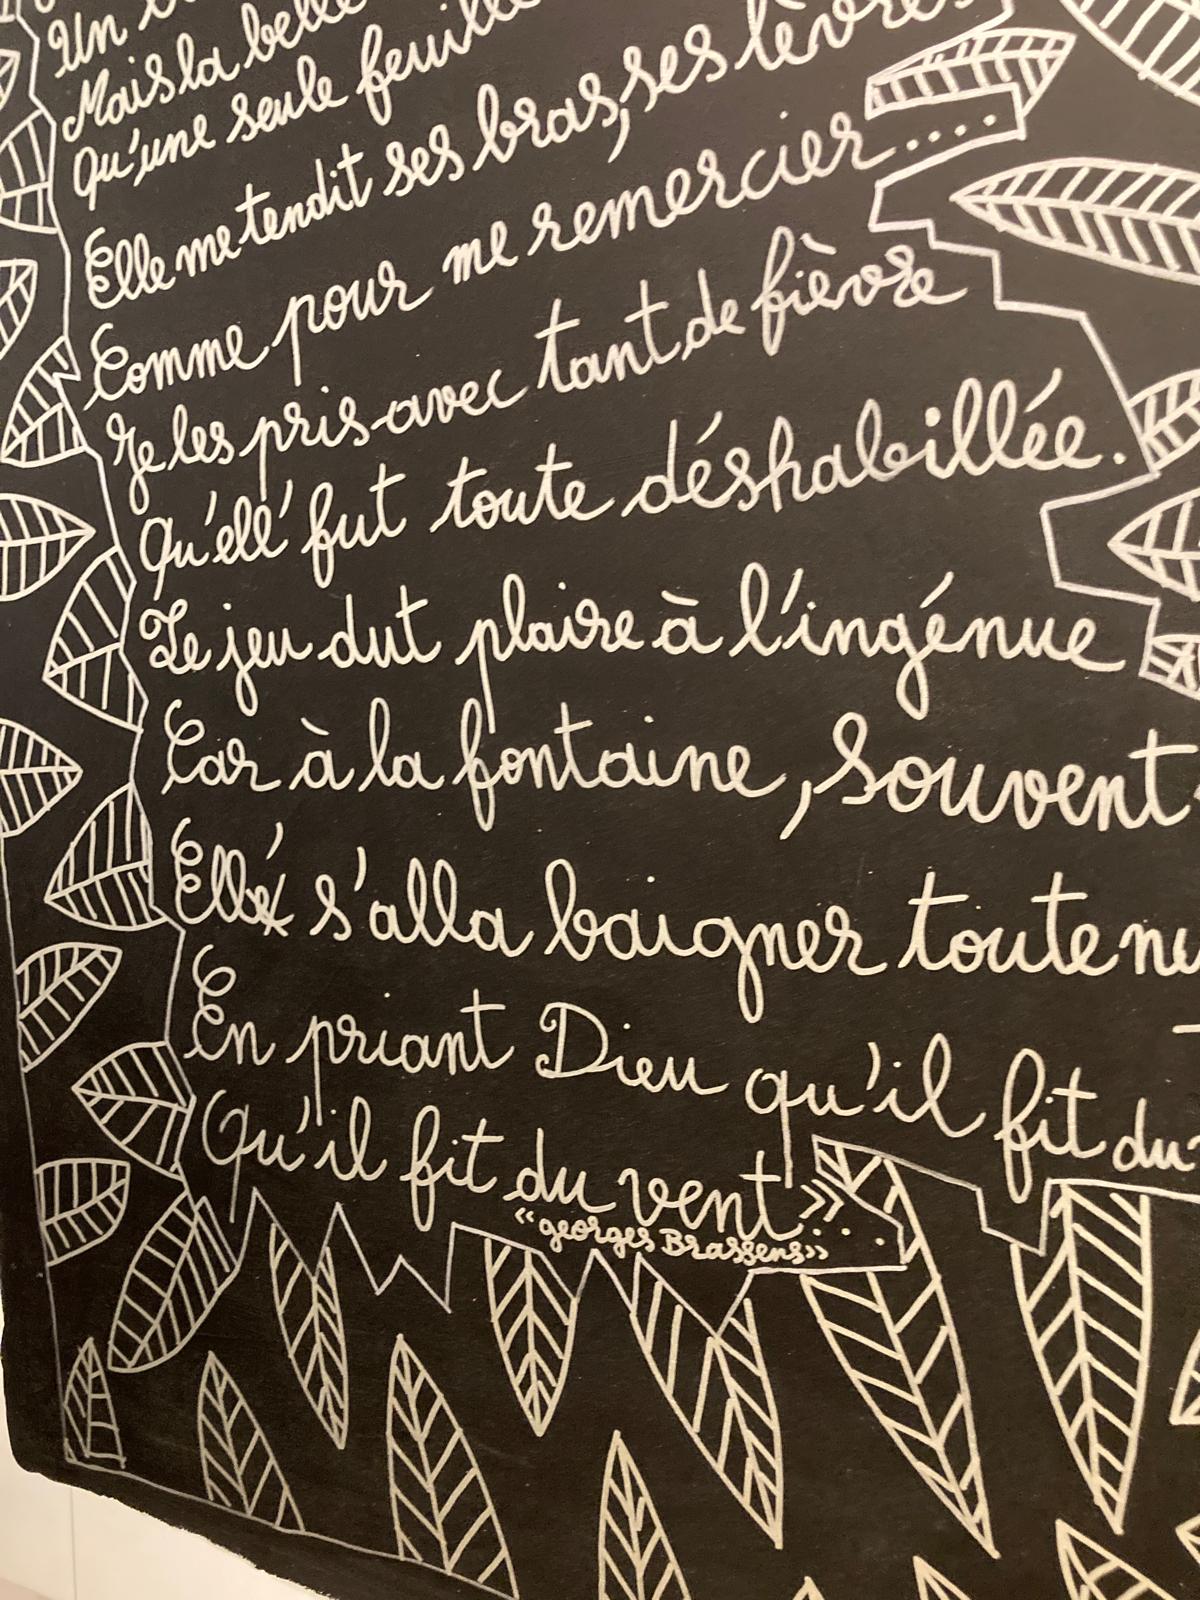 Un
Mais la belle
Qu'une seule feuille
Elle me tendit ses bras, ses lèvres,
Comme pour me remercier....
Je les pris avec tant de fièvre
Qu'ell' fut toute déshabillée.
Le jeu dut plaire à l'ingénue
Car à la fontaine, souvent
Ell' s'alla baigner toute nu
En priant Dieu qu'il fit du
Qu'il fit du vent »...
"georges Brassens»